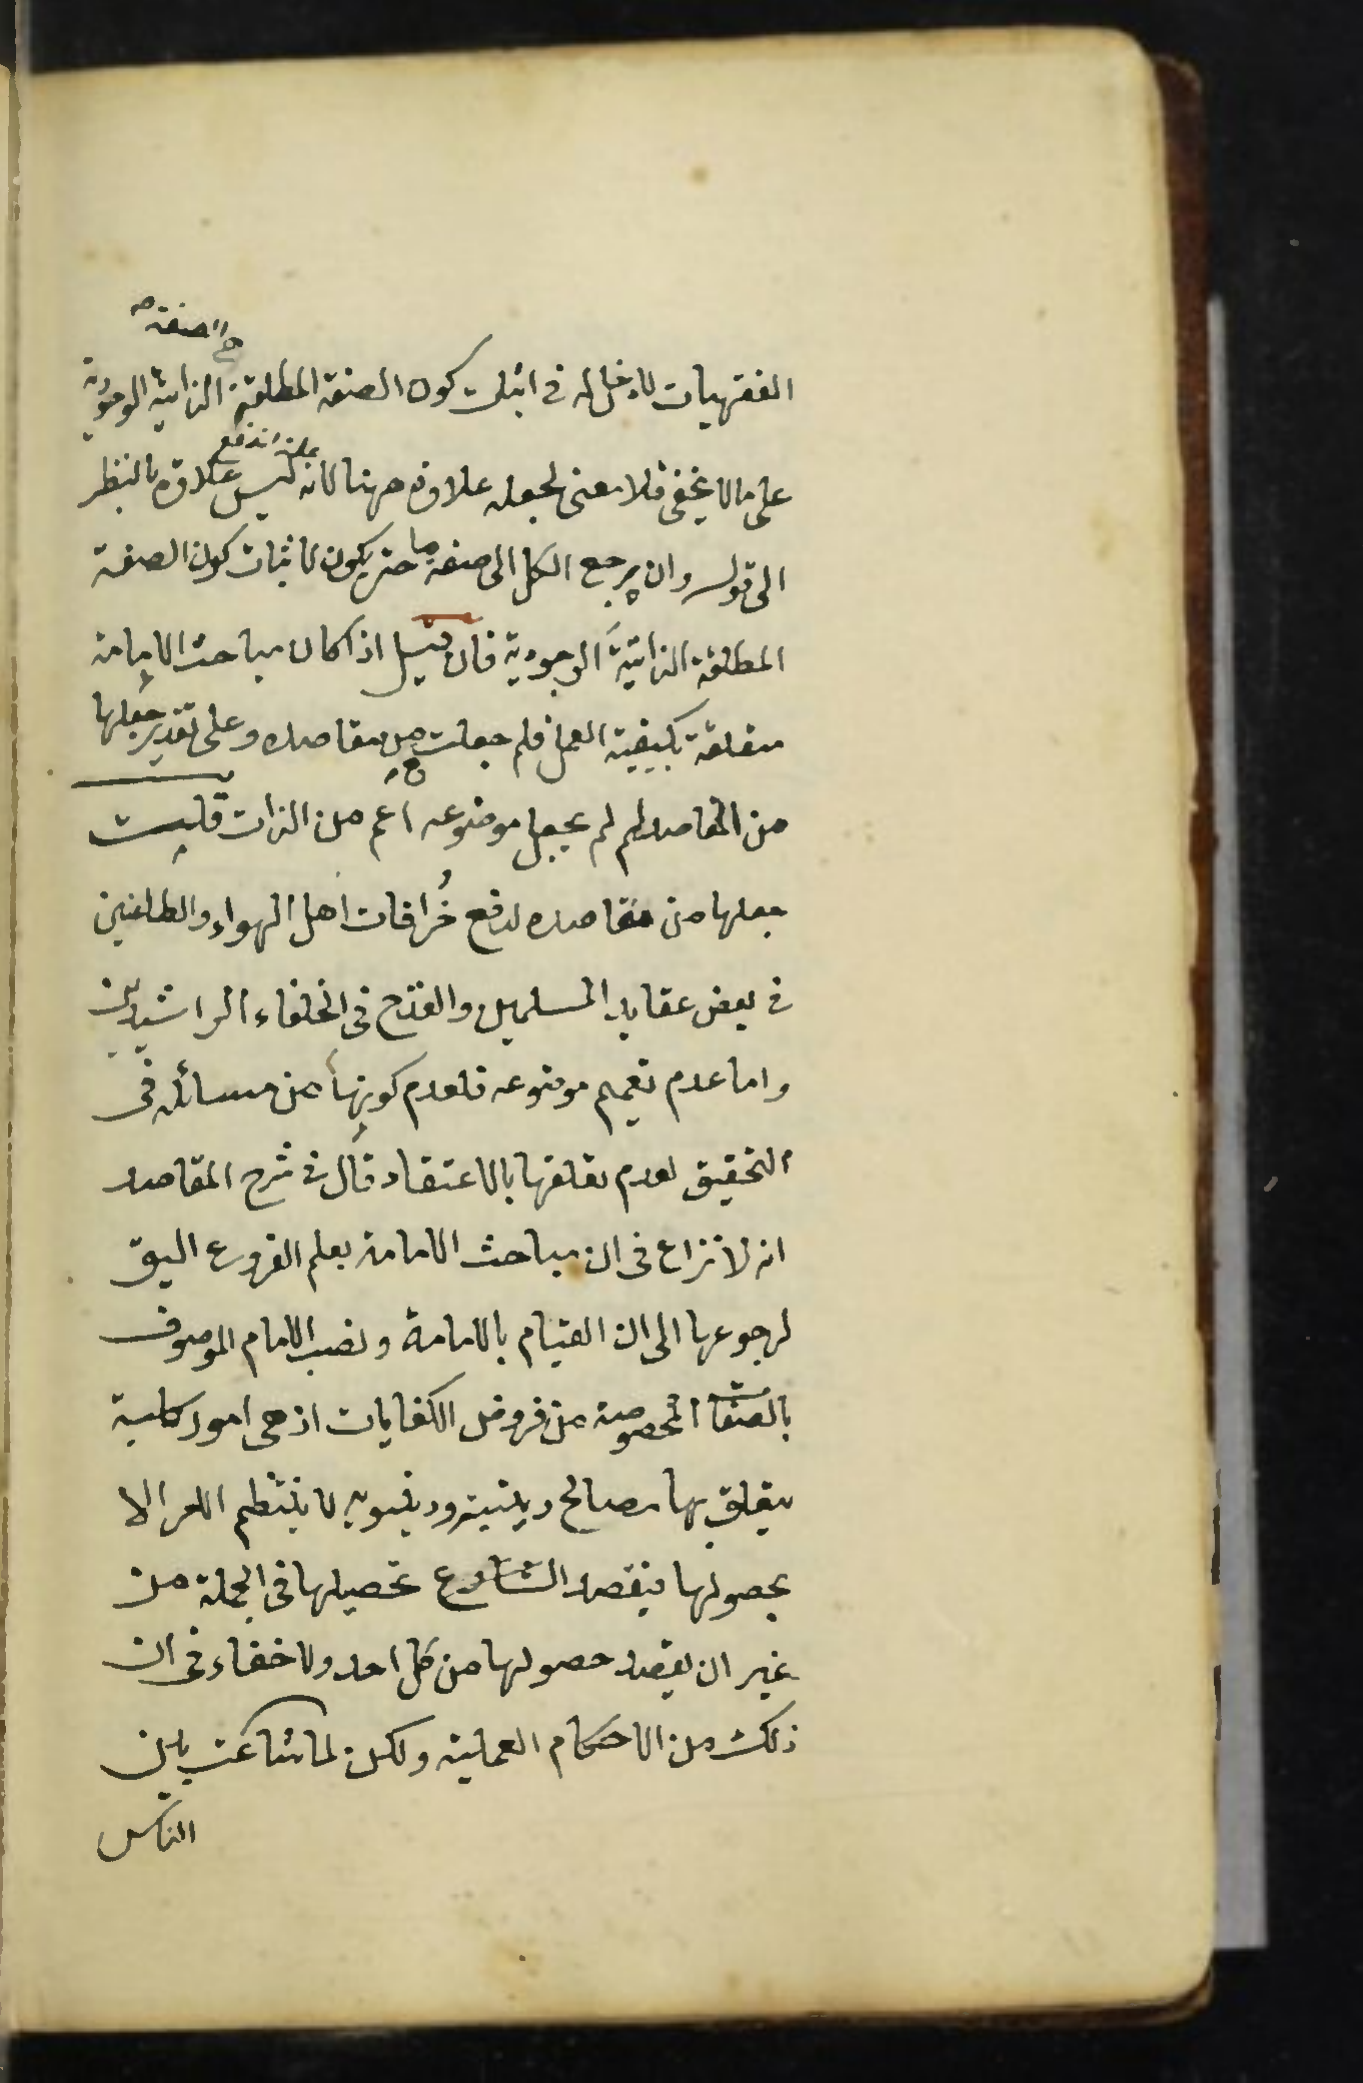 هي الصفة
الفقهيات لا دخل له في اثبات كون الصفة المطلقة الذاتية الوجودية
على ما لا يخفى فلا معنى لجعله علاوة ههنا لانه ليس علاوة بالنظر
الى قوله وان يرجع الكل الى صفة ما حتى يكون لاثبات كون الصفة
المطلقة الذاتية الوجودية فان قيل اذا كان مباحث الامامة
متعلقة بكيفية العمل فلم جعلت من مقاصده وعلى تقدير جعلها
من المقاصد لم لم يجعل موضوعه اعم من الذات قلت
جعلها من مقاصده لدفع خُرافات اهل الهواء والطاعنين
في بعض عقايد المسلمين والقدح في الخلفاء الراشدين
واما عدم تعميم موضوعه فلعدم كونها من مسائله في
التحقيق لعدم تعلقها بالاعتقاد قال في شرح المقاصد
انه لا نزاع في ان مباحث الامامة بعلم الفروع اليق
لرجوعها الى ان القيام بالامامة ونصب الامام الموصوف
بالصفات المخصوصة من فروض الكفايات اذ هي امور كلية
يتعلق بها مصالح دينية ودنيوية لا ينتظم الامر الا
بحصولها فيقصد الشارع تحصيلها في الجملة من
غير ان يقصد حصولها من كل احد ولا خفاء في ان
ذلك من الاحكام العملية ولكن لما شاعت بين
الناس